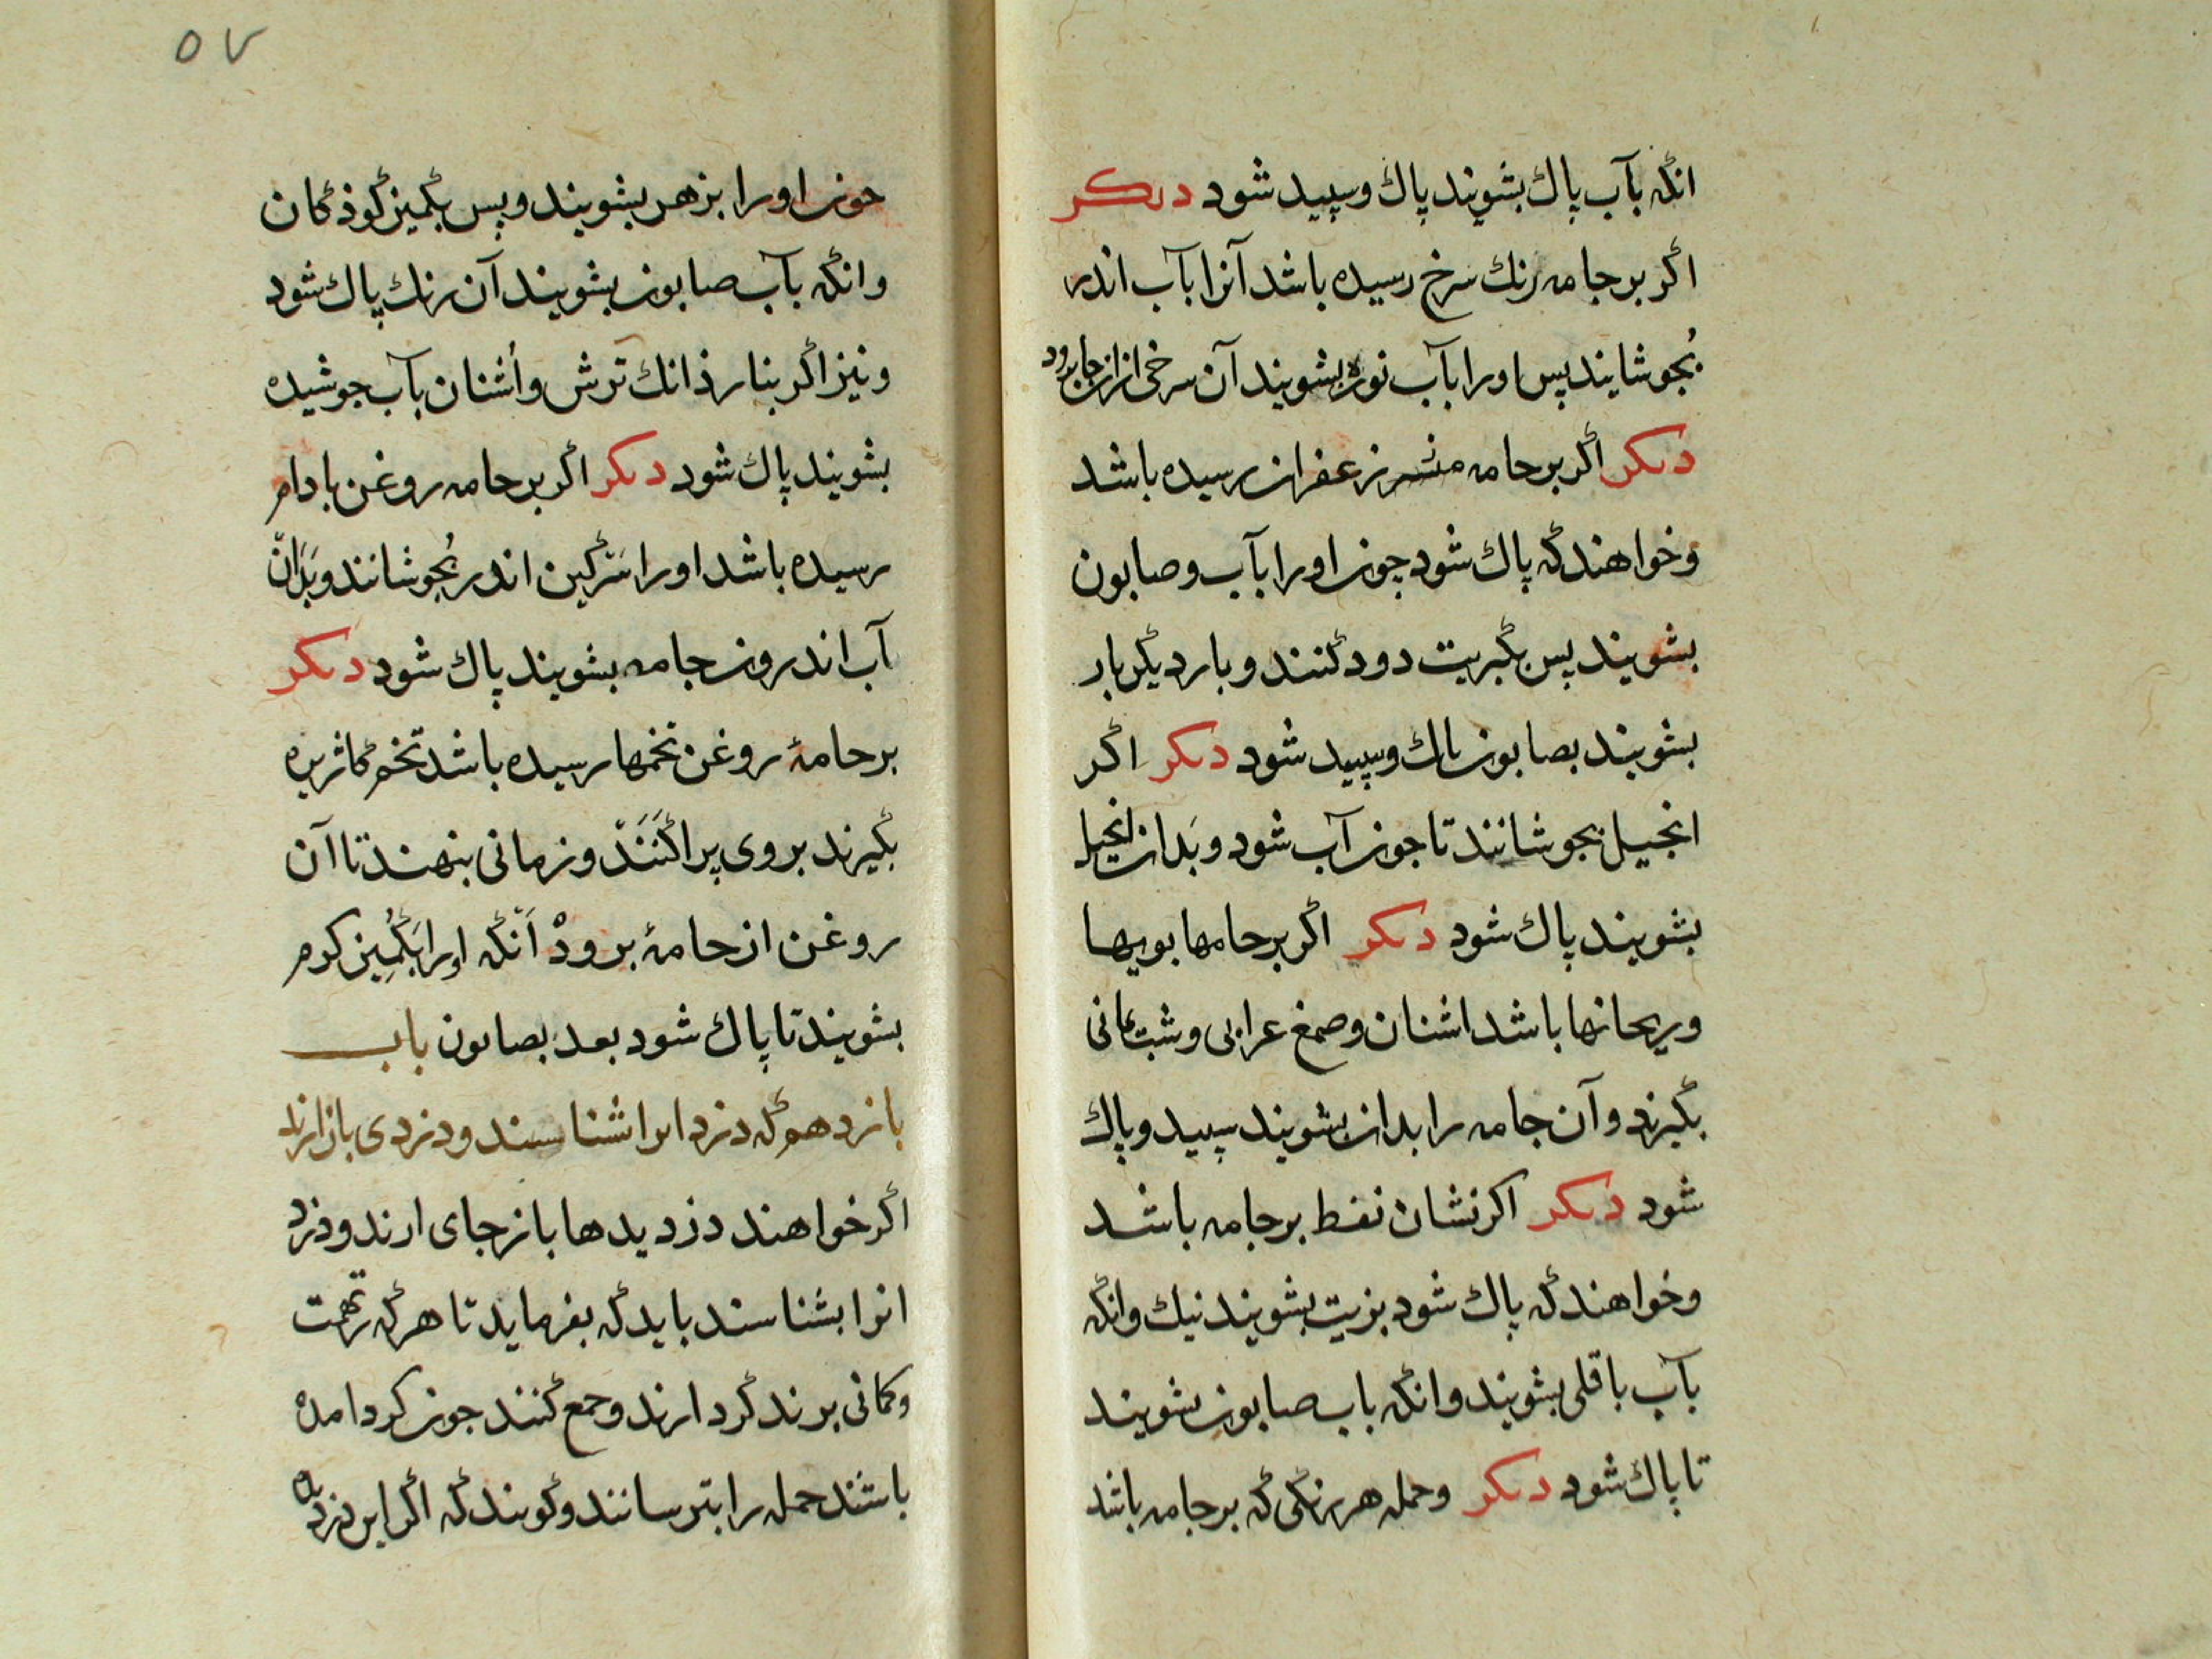 انگه بآب پاك بشویند پاك وسپید شود دیکر
اگر بر جامه رنك سرخ رسیده باشد آنرا بآب اندر
بجوشایند پس اورا بآب نوره بشویند آن سرخی از ان جا برود
دیکر اگر بر جامه زعفران رسیده باشد
وخواهند گه پاك شود چون اورا بآب وصابون
بشویند پس بگبریت دود گنند وبار دیگر بار
بشویند بصابون پاك وسپید شود دیکر اگر
انجیل بجوشانند تا جون آب شود وبدان انجیل
بشویند پاك شود دیکر اگر بر جامها بویها
وریحانها باشد اشنان وصمغ عرابی وشب یمانی
بگیرند وآن جامه را بدان بشویند سپید وپاك
شود دیکر اکر نشان نفط بر جامه باشد
وخواهند گه پاك شود بزیت بشویند نیك وانگه
بآب باقلی بشویند وانگه باب صابون بشویند
تا پاك شود دیکر وجمله هر رنگی گه بر جامه باشد
٥٧
جون اورا بزهر بشویند وپس بگمیز گوذگان
وانگه بآب صابون بشویند آن رنك پاك شود
ونیز اگر بنار ذانك ترش وأشنان بآب جوشیده
بشویند پاك شود دیکر اگر بر جامه روغن بادام
رسیده باشد اورا سرگین اندر بجوشانند وبدان
آب اندرون جامه بشویند پاك شود دیکر
بر جامهٔ روغن تخمها رسیده باشد تخم گاثریره
بگیرند بروی پراگنند وزمانی بنهند تا آن
روغن از جامهٔ برود انگه اورا بگمیز کرم
بشویند تا پاك شود بعد بصابون باب
یازدهم گه دزد ایرا شناسند ودزدی باز ارند
اگر خواهند دزدیدها باز جای ارند ودزد
انرا بشناسند باید گه بفرماید تا هر گه تهمت
وکمانی برند گرد ارند وجمع گنند جون کرد امده
باشند جمله را بترسانند وگویند گه اگر این دزدی